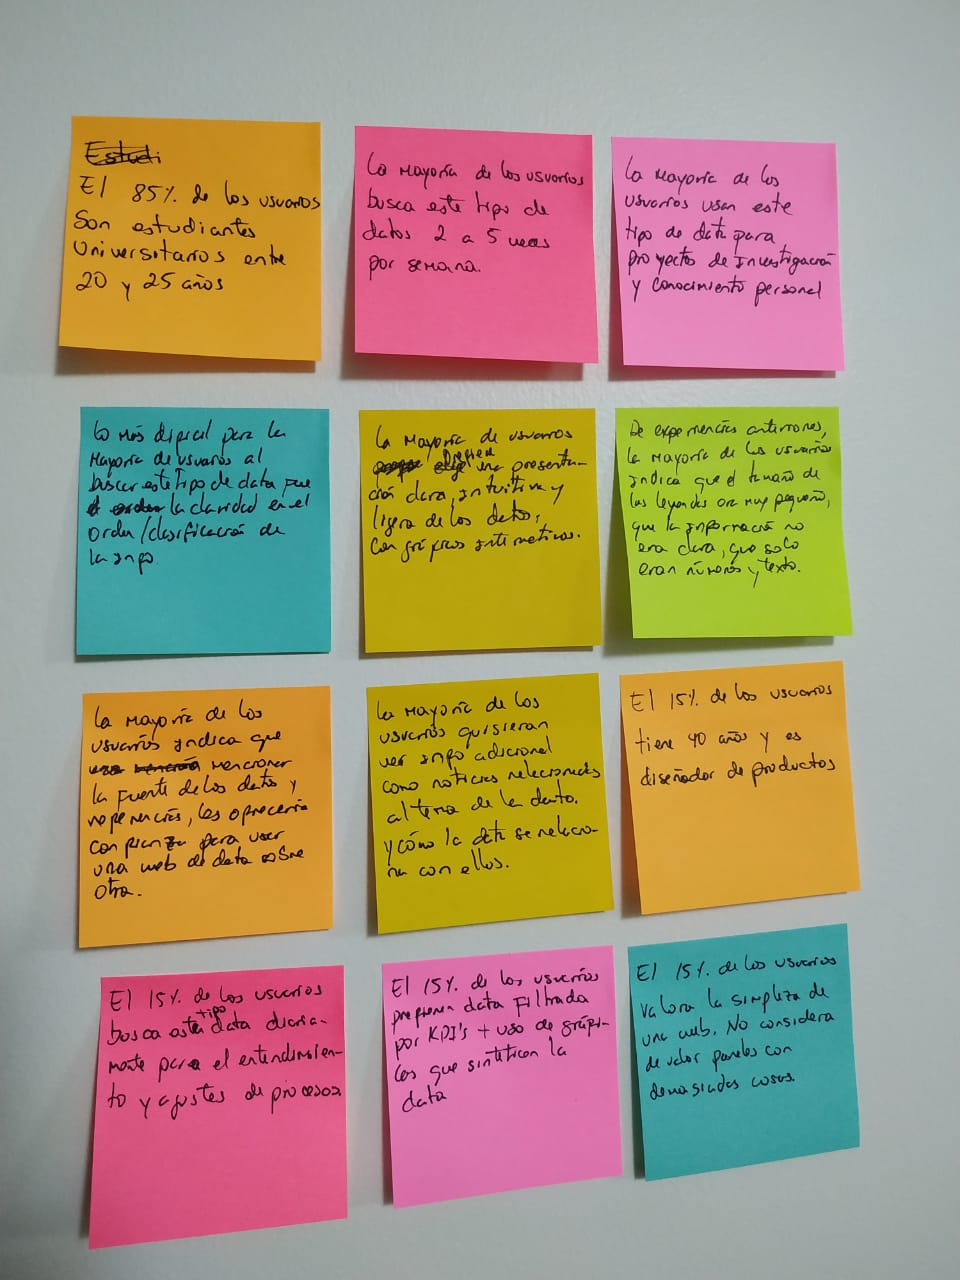 Estudi
El 85% de los usuarios
son estudiantes
universitarios entre
20 y 25 años
La mayoría de los usuarios
busca este tipo de
datos 2 a 5 veces
por semana.
La mayoría de los
usuarios usan este
tipo de data para
proyectos de investigación
y conocimiento personal
Lo más difícil para la
mayoría de usuarios al
buscar este tipo de data fue
la claridad en el
orden/clasificación de
la info.
La mayoría de usuarios
prefieren una presenta-
ción clara, intuitiva y
ligera de los datos,
con gráficos interactivos.
De experiencias anteriores,
la mayoría de los usuarios
indica que el tamaño de
las leyendas era muy pequeño,
que la información no
era clara, que solo
eran números y texto.
La mayoría de los
usuarios indica que
mencionar
la fuente de los datos y
referencias, les ofrecería
confianza para usar
una web de data sobre
otra.
La mayoría de los
usuarios quisieran
ver info adicional
como noticias relacionadas
al tema de la data.
y cómo la data se relacio-
na con ellos.
El 15% de los usuarios
tiene 40 años y es
diseñador de productos
El 15% de los usuarios
busca este tipo data diaria-
mente para el entendimien-
to y ajustes de procesos
El 15% de los usuarios
prefieren data filtrada
por KPI's + uso de gráfi-
cos que sinteticen la
data
El 15% de los usuarios
valora la simpleza de
una web. No considera
de valor paneles con
demasiadas cosas.